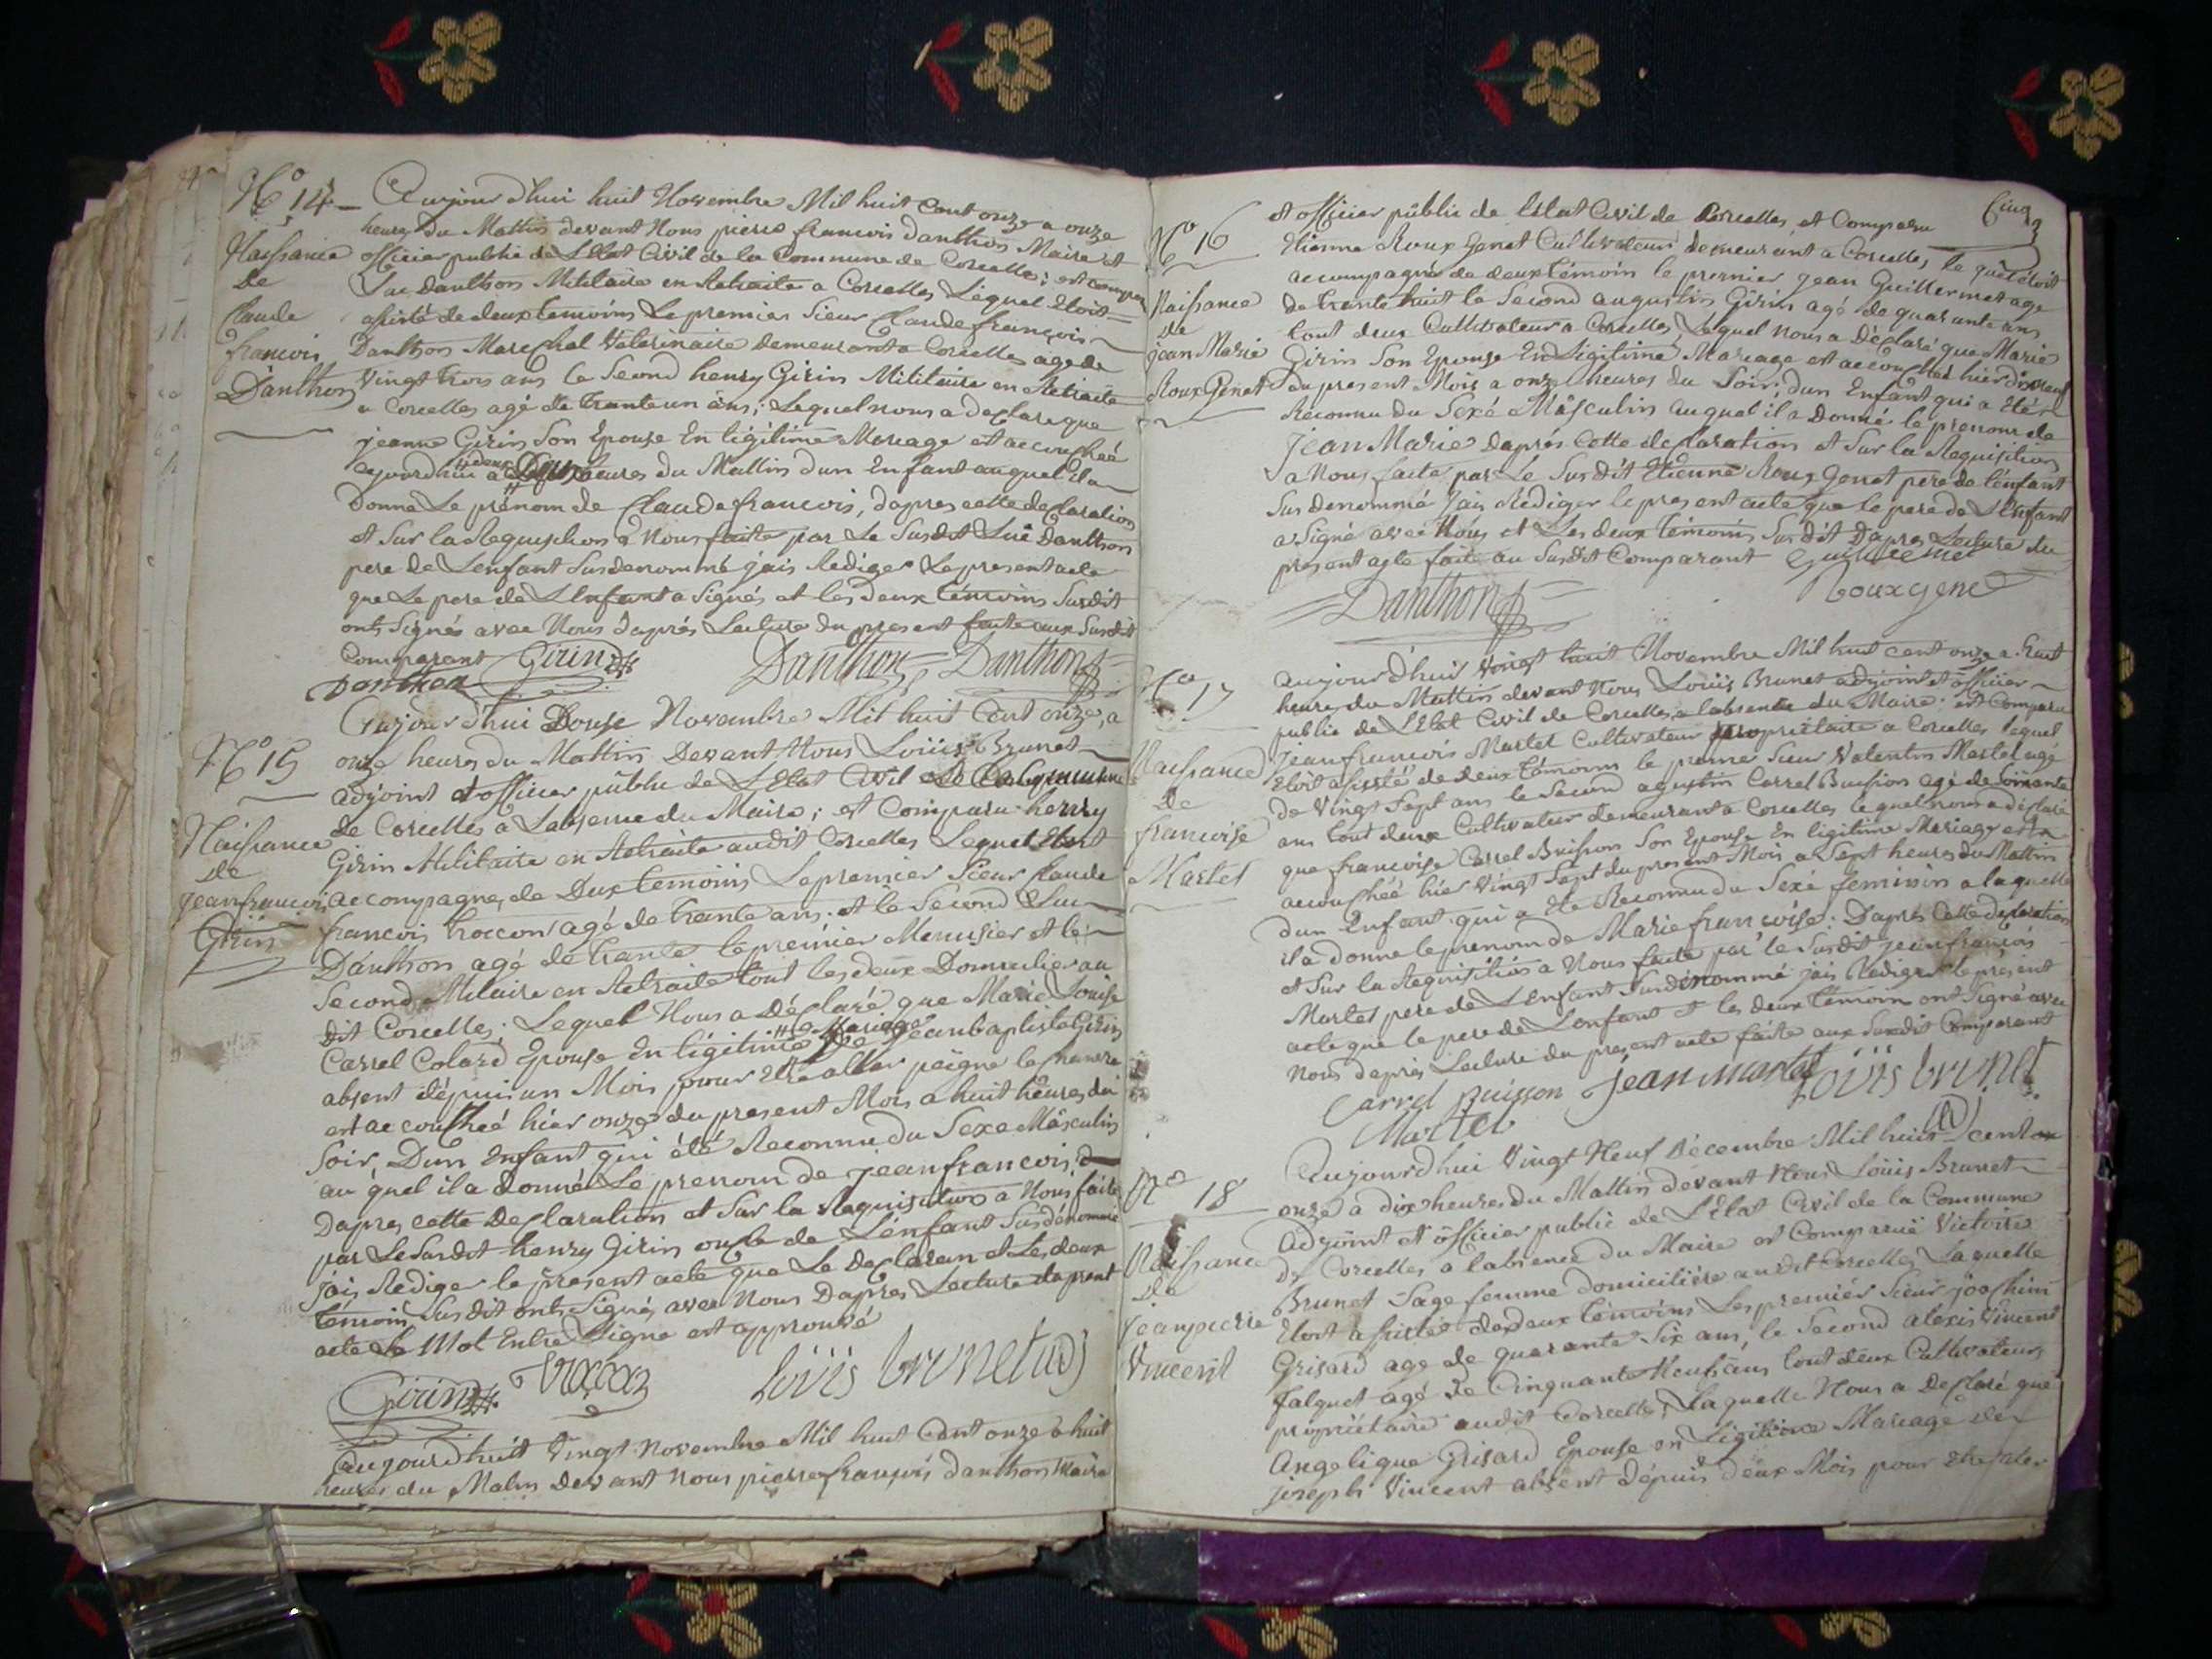 N.o 14
Naissance
de
Claude
francois
Danthon
Aujourd'hui huit Novembre Mil huit Cent onze a onze
heures du Mattin devant Nous pierre francois Danthon Maire et
officier public de L'Etat Civil de la Commune de Corcelles; est compar
Luc Danthon Militaire en Retraite a Corcelles Lequel Etoit
assisté de deux temoins Le premier Sieur Claude françois
Danthon Marechal Vétérinaire demeurant a Corcelles age de
Vingt trois ans le Second henry Girin Militaire en Retraite
a Corcelles agé de trante un ans; Lequel nous a declare que
jeanne Girin Son Epouse En légitime Mariage est accouchée
aujourdhui a deux heures du Mattin dun Enfant auquel il a
Donné Le prénom de Claude francois, dapres cette declaration
et Sur la Requisition a Nous faite par Le Susdit Luc Danthon
pere de Lenfant Susdenommé jais Rediger Le present acte
que Le pere de L'Enfant a Signés et les deux témoins Susdit
onts Signés avec Nous daprés Lecture du present faite aux Susdit
Comparant Girin Danthon Danthon
Danthon
N.o 15
Naissance
de
jeanfrancois
Girin
Aujourd'hui Douse Novembre Mil huit Cent onze, a
onze heures du Mattin Devant Nous Loüis Brunet
adjoint et officier public de L'Etat Civil de la Commune
de Corcelles a Labsence du Maire; est Comparu henry
Girin Militaire en Retraite audit Corcelles Lequel Etoit
accompagné de Dux temoins Le premier Sieur Claude
francois troccon agé de trante ans. et le Second Luc
Danthon agé de trante le premier Menusier et le
Second Militaire en Retraite tout les deux Domicilier au
dit Corcelles; Lequel Nous a Déclaré que Marie Louise
Carrel Colard Epouse En légitime Mariage de jeanbaptiste Girin
absent dépuis un Mois pour Etre aller peigne le chanvre
est accouchée hier onze du present Mois a huit heures du
Soir, Dun Enfant qui été Reconnu du Sexe Masculin
au quel il a Donné Le prenom de jeanfrancois,
Dapres cette Declaration et Sur la Requisition a Nous faite
par Le Susdit henry Girin oncle de L'énfant Susdénommé
jais Rediger le present acte que Le Declaran et Les deux
témoin Susdit onts Signés avec Nous Dapres Lecture du present
acte Le Mot Entre Ligne est approuvé
Girin Loüis brunet adj
Aujourdhuit Vingt Novembre Mil huit Cent onze a huit
heures du Matin Devant Nous pierre françois danthon Maire
Cinq
N.o 16
Naissance
de
jean Marie
Roux Genet
et officier public de l'Etat Civil de Corcelles, et Comparu
Etienne Roux Genet Cultivateur demeurant a Corcelles, le quel étoit
accompagné de deux témoin le premier jean Guillermet age
de trante huit le Second augustin Girin agé de quarante ans
tout deux Cultivateur a Corcelles, Lequel nous a Déclaré que Marie
Girin Son Epouse En Légitime Mariage est accouchée hier dixneuf
du present Mois a onze heures du Soir; dun Enfant qui a Eté
Reconnu du Sexé Masculin auquel il a Donné le prenom de
Jean Marie Daprés Cette declaration et Sur la Requisition
a Nous faite par Le Susdit Etienne Roux Genet pere de l'énfant
Susdenommé jais Rediger le present acte que le pere de L'énfant
a Signé avec Nous et Les deux témoins Susdit Dapres Lecture du
present acte faite au Susdit Comparant Guillermet
Danthon Rouxgenet
N.o 17
Naissance
de
francoise
Martet
aujourd'huis Vingt huit Novembre Mil huit cent onze a huit
heures du Mattin devant Nous Loüis Brunet adjoint et officier
public de L'Etat Civil de Corcelles, a labsente du Maire. est Comparu
jeanfrancois Martet Cultivateur propriétaire a Corcelles lequel
Etoit assisté de deux témoins le premie Sieur Valentin Martet agé
de Vingt Sept ans le Second agustin Carrel Buisson agé de soixante
ans tout deux Cultivateur demeurant a Corcelles lequel nous a déclaré
que francoise Carrel Buisson Son Epouse En légitime Mariage est
accouchéé hier Vingt Sept du present Mois a Sept heures du Mattin
dun Enfant qui a Eté Reconnu du Sexé feminin a laquelle
il a donné le prenom de Marie françoise. Daprés Cette declaration
et Sur la Requisition a Nous faite par le Susdit jeanfrançois
Martet pere de L'Enfant Susdénommé jais Rediger le présent
acte que le pere de Lenfant et les deux témoin ont Signé avec
nous daprés Lecture du present acte faite aux Susdit Comparant
Carrel Buisson jean martet Loüis brunet
Martet
N.o 18
Naissance
de
jeanpierre
Vincent
Aujourd'hui Vingt Neuf Décembre Mil huit cent
onze a dix heures du Mattin devant Nous Loüis Brunet
Adjoint et officier public de L'Etat Civil de la Commune
de Corcelles a labsence du Maire est Comparuë Victoire
Brunet Sage femme domiciliére audit Corcelles Laquelle
Etoit assistée de deux témoins Les premiér Sieur joachim
Grisard agé de quarante Six ans, le Second alexis Vincent
falquet agé de Cinquante Neuf ans tout deux Cultivateur
propriétaire audit Corcelles, Laquelle Nous a Declaré que
Angelique Grisard Epouse en Légitime Mariage de
Joseph Vincent absent Dépuis deux Mois pour etre aler